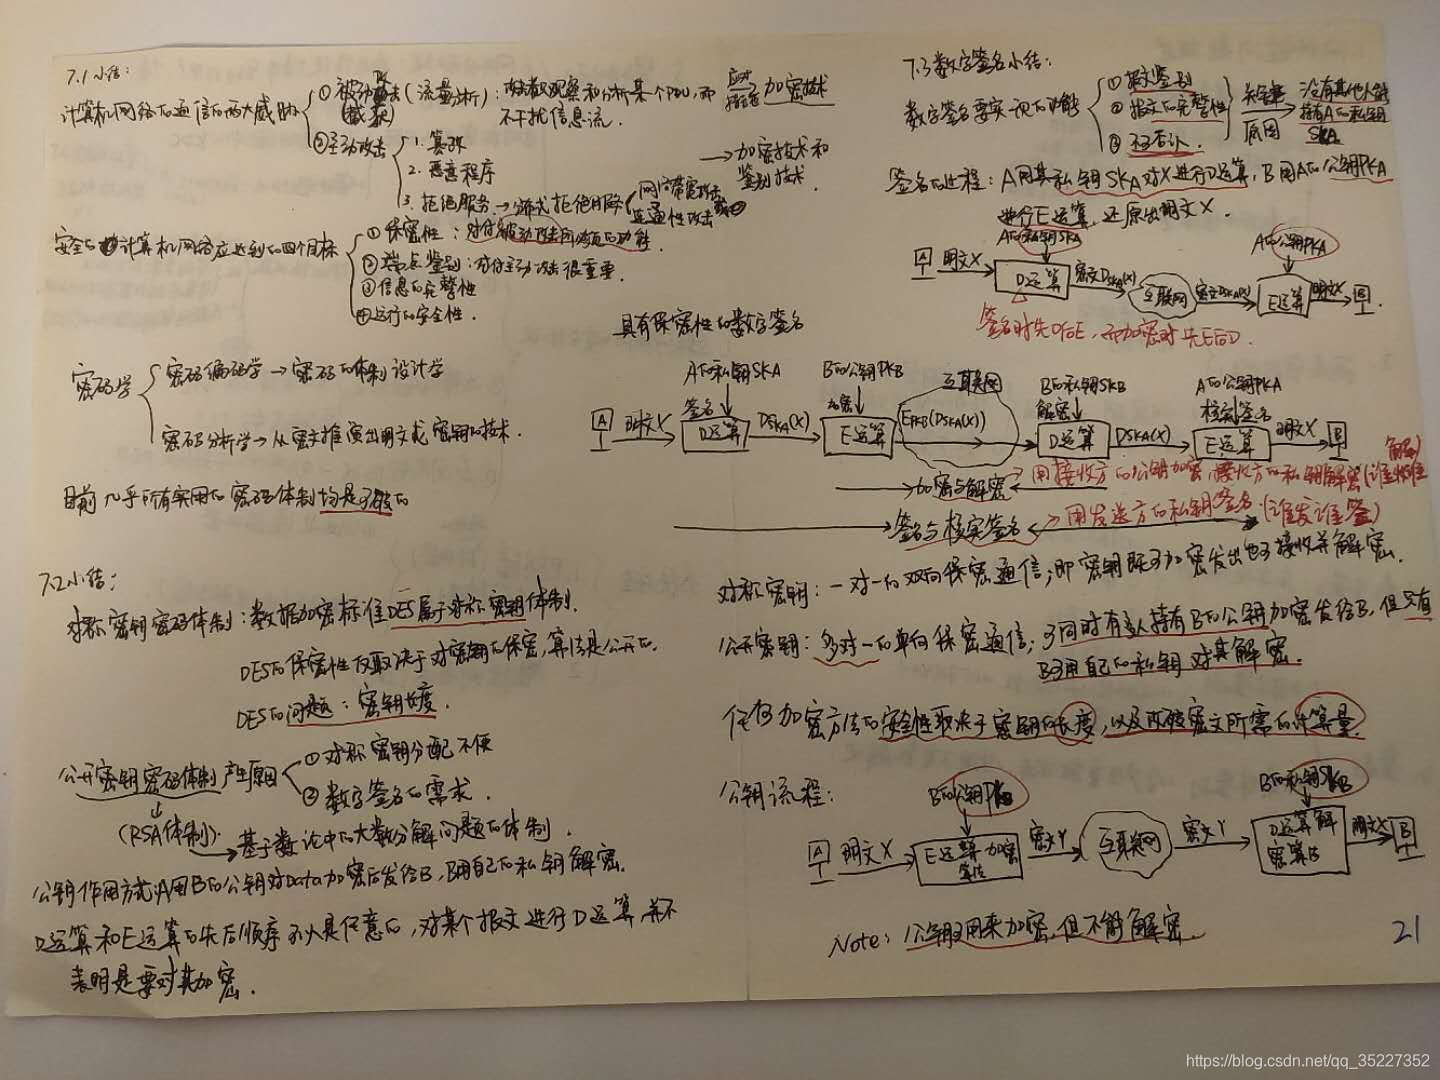 7.1小结:
计算机网络的通信的两大威胁
①被动攻击(流量分析):攻击者观察和分析某个PDU,而
(截获)
不干扰信息流.
应对
措施
加密技术
②主动攻击
1.篡改
2.恶意程序
3.拒绝服务→分布式拒绝服务
网络带宽攻击
连通性攻击
→加密技术和
鉴别技术.
安全的计算机网络应达到的四个目标
①保密性:对付被动攻击所必须的功能.
②端点鉴别:对付主动攻击很重要.
③信息的完整性
④运行的安全性.
密码学
密码编码学→密码的体制设计学
密码分析学→从密文推演出明文或密钥的技术.
目前几乎所有实用的密码体制均是可破的
7.2小结:
对称密钥密码体制:数据加密标准DES属于对称密钥体制.
DES的保密性仅取决于对密钥的保密,算法是公开的.
DES的问题:密钥长度.
公开密钥密码体制产生原因
①对称密钥分配不便
②数字签名的需求.
(RSA体制).
基于数论中的大数分解问题的体制.
公钥作用方式:A用B的公钥对Data加密后发给B,B用自己的私钥解密.
D运算和E运算的先后顺序可以是任意的,对某个报文进行D运算,并不
表明是要对其加密.
7.3数字签名小结:
数字签名要实现的功能
①报文鉴别
②报文的完整性
③不可否认.
关键
原因
没有其他人能
持有A的私钥
SKA
签名的过程:A用其私钥SKA对X进行D运算,B用A的公钥PKA
进行E运算,还原出明文X.
A的私钥SKA
A的公钥PKA
A 明文X D运算 密文DSKA(X) 互联网 密文DSKA(X) E运算 明文X B.
签名时先D后E,而加密时先E后D.
具有保密性的数字签名
A的私钥SKA
B的公钥PKB
互联网
B的私钥SKB
A的公钥PKA
签名
加密
解密
核实签名
A 明文X D运算 DSKA(X) E运算 EPKB(DSKA(X)) D运算 DSKA(X) E运算 明文X B
加密与解密→用接收方的公钥加密,接收方的私钥解密(谁收谁
解)
签名与核实签名→用发送方的私钥签名.(谁发谁签)
对称密钥:一对一的双向保密通信;即密钥既可加密发出也可接收并解密.
公开密钥:多对一的单向保密通信;可同时有多人持有B的公钥加密发给B,但只有
B可用自己的私钥对其解密.
任何加密方法的安全性取决于密钥的长度,以及攻破密文所需的计算量.
公钥流程:
B的公钥PKB
B的私钥SKB
A 明文X E运算加密算法 密文Y 互联网 密文Y D运算解密算法 明文X B
Note:公钥只用来加密,但不能解密.
21
https://blog.csdn.net/qq_35227352